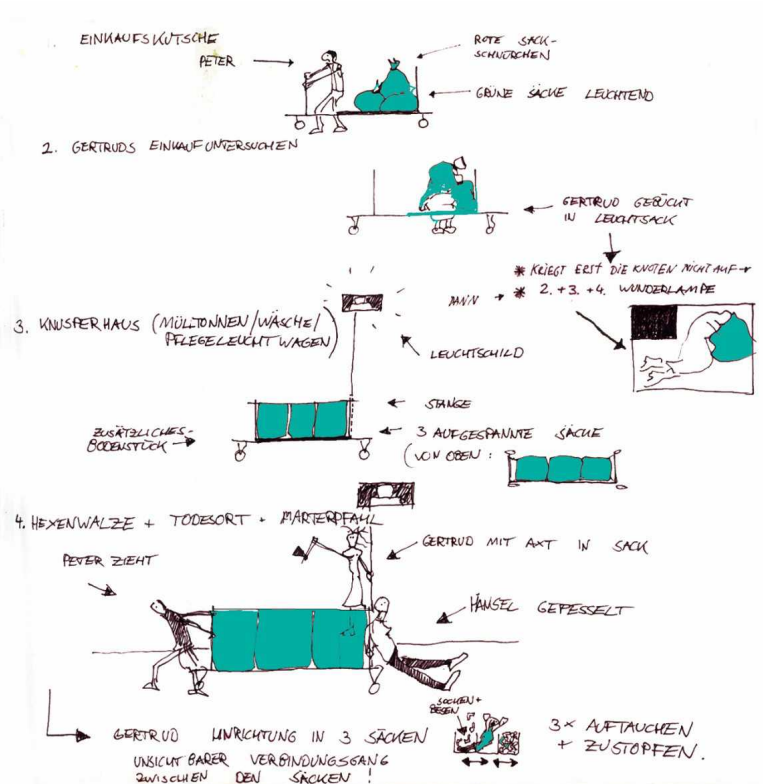 EINKAUFSKUTSCHE
PETER
ROTE SACK-
SCHNÜRCHEN
GRÜNE SÄCKE LEUCHTEND
2. GERTRUDS EINKAUF UNTERSUCHEN
GERTRUD GEBÜCKT
IN LEUCHTSACK
* KRIEGT ERST DIE KNOTEN NICHT AUF
DANN * 2.+3.+4. WUNDERLAMPE
3. KNUSPERHAUS (MÜLLTONNEN/WÄSCHE/
PFLEGELEUCHTWAGEN)
LEUCHTSCHILD
STANGE
ZUSÄTZLICHES-
BODENSTÜCK
3 AUFGESPANNTE SÄCKE
(VON OBEN:
4. HEXENWALZE + TODESORT + MARTERPFAHL
PETER ZIEHT
GERTRUD MIT AXT IN SACK
HÄNSEL GEFESSELT
SOCKEN+
BESEN
GERTRUD HINRICHTUNG IN 3 SÄCKEN
UNSICHTBARER VERBINDUNGSGANG
ZWISCHEN DEN SÄCKEN!
3x AUFTAUCHEN
+ ZUSTOPFEN.